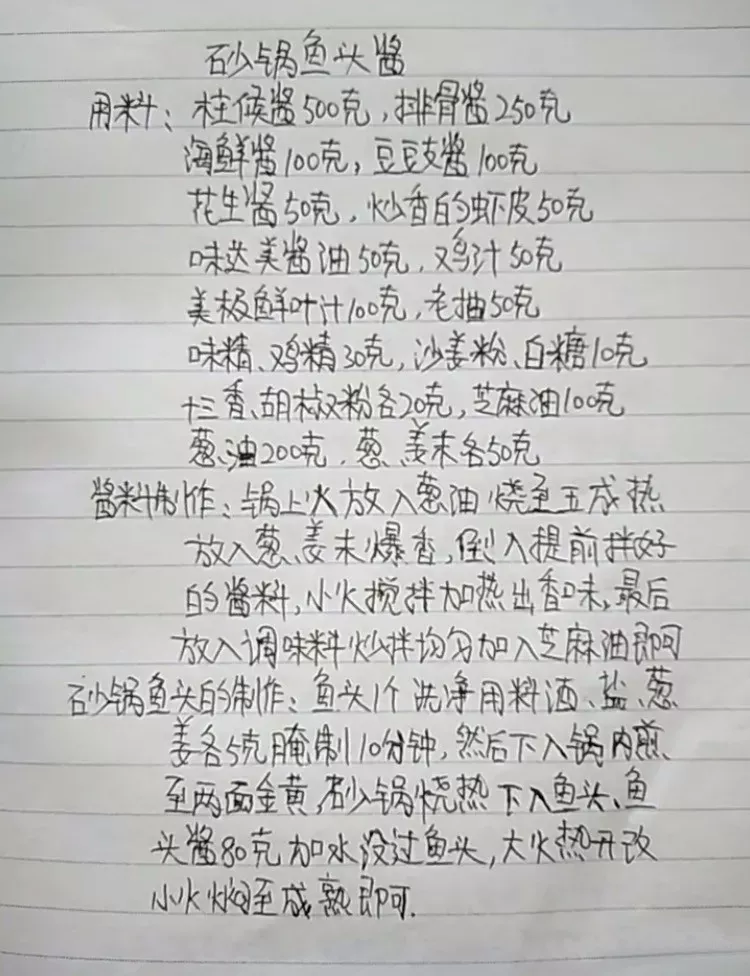 砂锅鱼头酱
用料：柱候酱500克，排骨酱250克
海鲜酱100克，豆豆支酱100克
花生酱50克，炒香的虾皮50克
味达美酱油50克，鸡汁50克
美极鲜叶汁100克，老抽50克
味精、鸡精30克，沙姜粉、白糖10克
十三香、胡椒粉各20克，芝麻油100克
葱油200克，葱、姜末各50克
酱料制作：锅上火放入葱油烧至五成热
放入葱、姜末爆香，倒入提前拌好
的酱料，小火搅拌加热出香味，最后
放入调味料炒拌均匀加入芝麻油即可
砂锅鱼头的制作：鱼头1个洗净用料酒、盐、葱
姜各5克腌制10分钟，然后下入锅内煎
至两面金黄，砂锅烧热下入鱼头、鱼
头酱80克加水没过鱼头，大火热开改
小火焖至成熟即可.